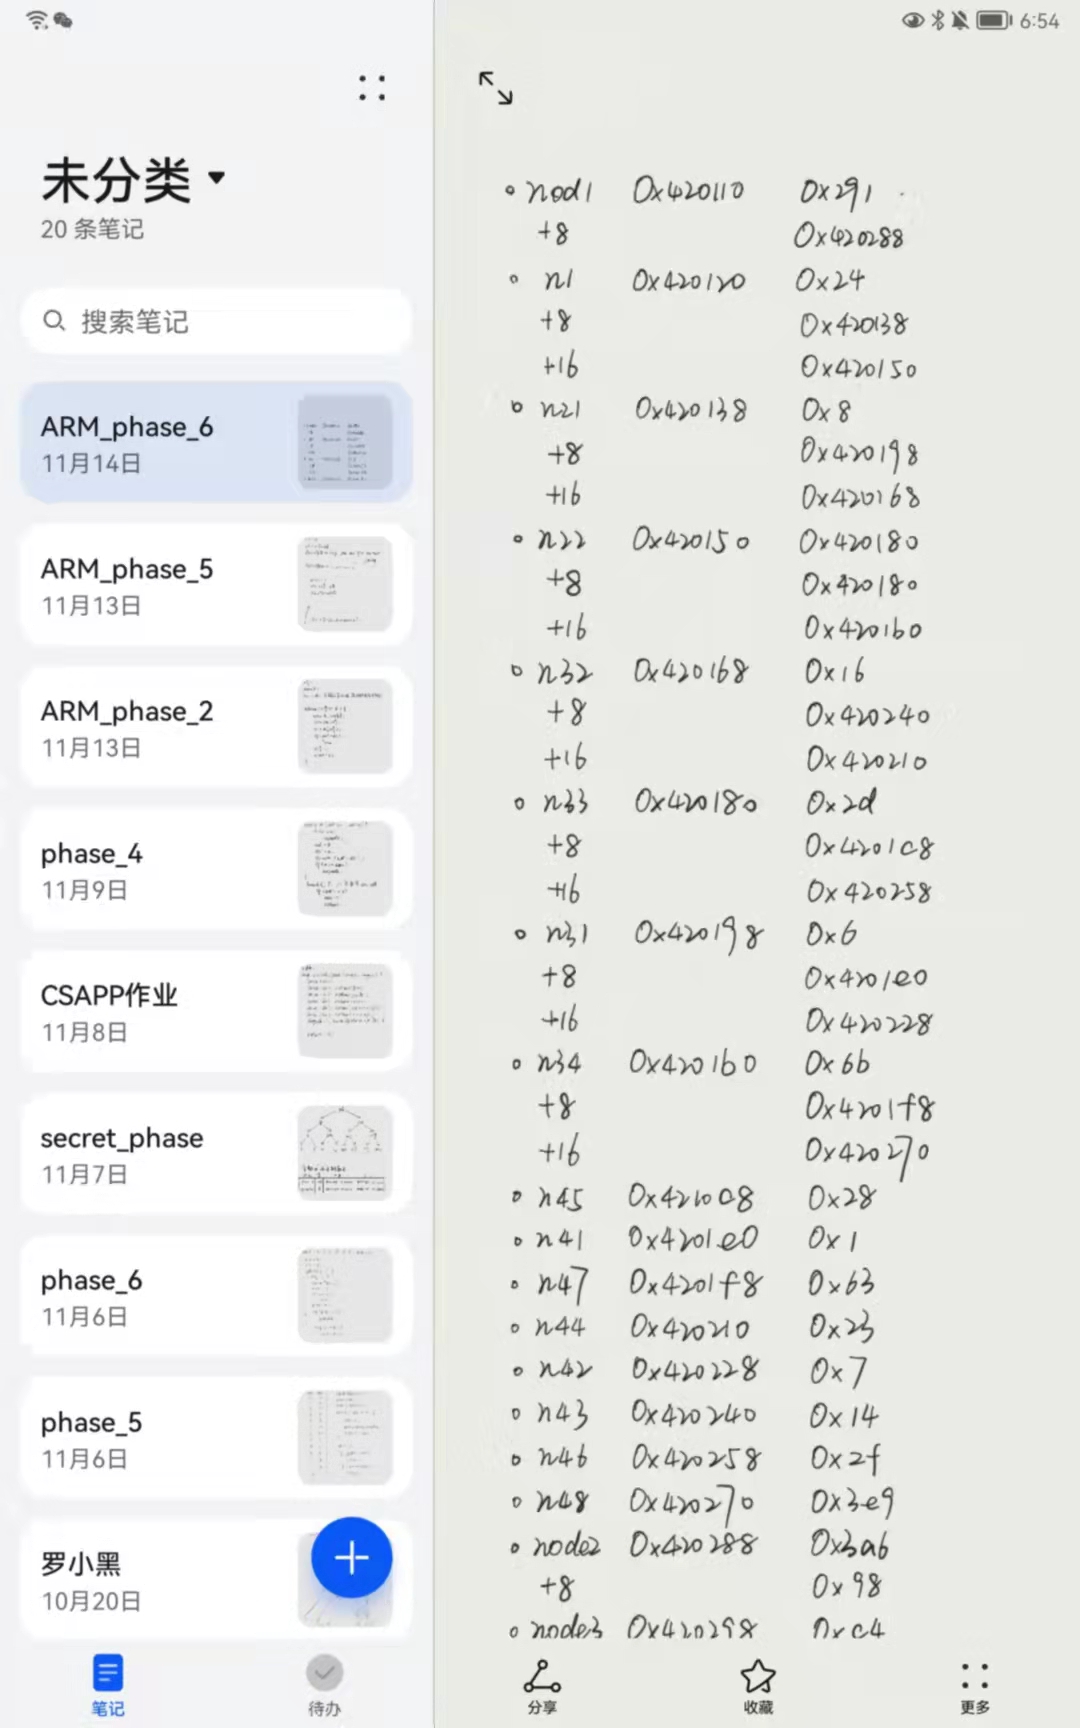 6:54
未分类
20 条笔记
搜索笔记
ARM_phase_6
11月14日
ARM_phase_5
11月13日
ARM_phase_2
11月13日
phase_4
11月9日
CSAPP作业
11月8日
secret_phase
11月7日
phase_6
11月6日
phase_5
11月6日
罗小黑
10月20日
笔记
待办
nod1 0x420110 0x291
+8 0x420288
n1 0x420120 0x24
+8 0x420138
+16 0x420150
n21 0x420138 0x8
+8 0x420198
+16 0x420168
n22 0x420150 0x420180
+8 0x420180
+16 0x4201b0
n32 0x420168 0x16
+8 0x420240
+16 0x420210
n33 0x420180 0x2d
+8 0x4201c8
+16 0x420258
n31 0x420198 0x6
+8 0x4201e0
+16 0x420228
n34 0x4201b0 0x6b
+8 0x4201f8
+16 0x420270
n45 0x4210c8 0x28
n41 0x4201e0 0x1
n47 0x4201f8 0x63
n44 0x420210 0x23
n42 0x420228 0x7
n43 0x420240 0x14
n46 0x420258 0x2f
n48 0x420270 0x3e9
node2 0x420288 0x3ab
+8 0x98
node3 0x420298 0xc4
分享
收藏
更多